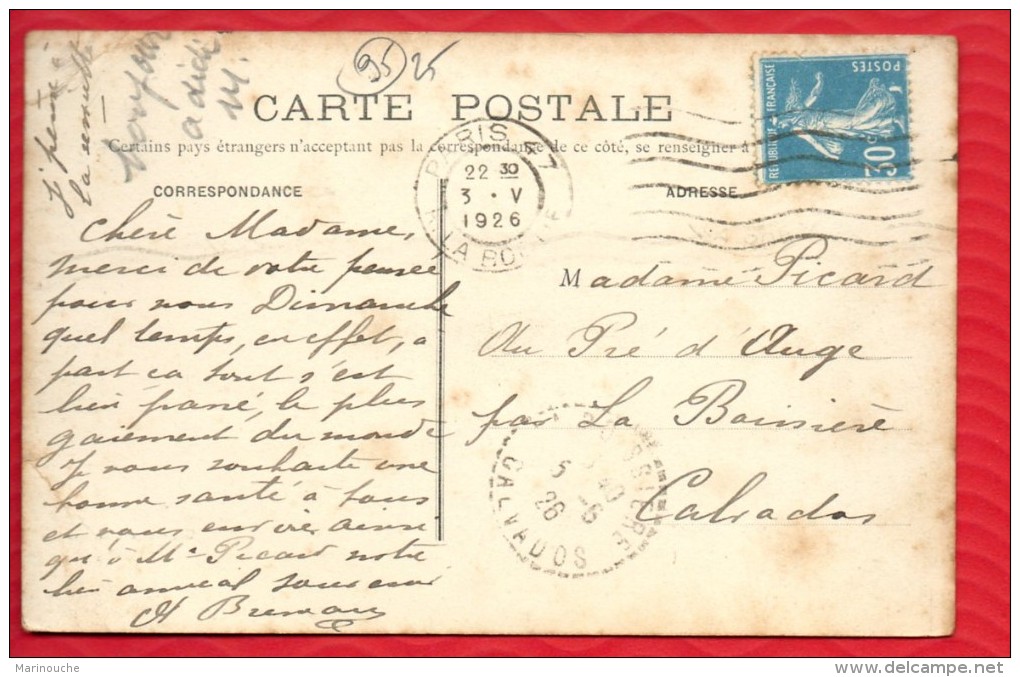 95 25
Bonjour
a didi
M.
J'
la
CARTE POSTALE
Certains pays étrangers n'acceptant pas la correspondance de ce côté, se renseigner à
CORRESPONDANCE
ADRESSE
PARIS 47
22 30
3 · V
1926
R. LA BOETIE
REPUBLIQUE FRANÇAISE
POSTES
30c
Chère Madame,
merci de votre pensée
pour nous Dimanche
quel temps, en effet, a
part ca tout s'est
bien passé, le plus
gaiement du monde
Je vous souhaite une
bonne santé à tous
et vous envoie ainsi
qu'à Mr Picard notre
bien amical souvenir
Madame Picard
Au Pré d'Auge
par La Boissière
Calvados
LA BOISSIERE
5
26
CALVADOS
Marinouche
http://www.delcampe.net